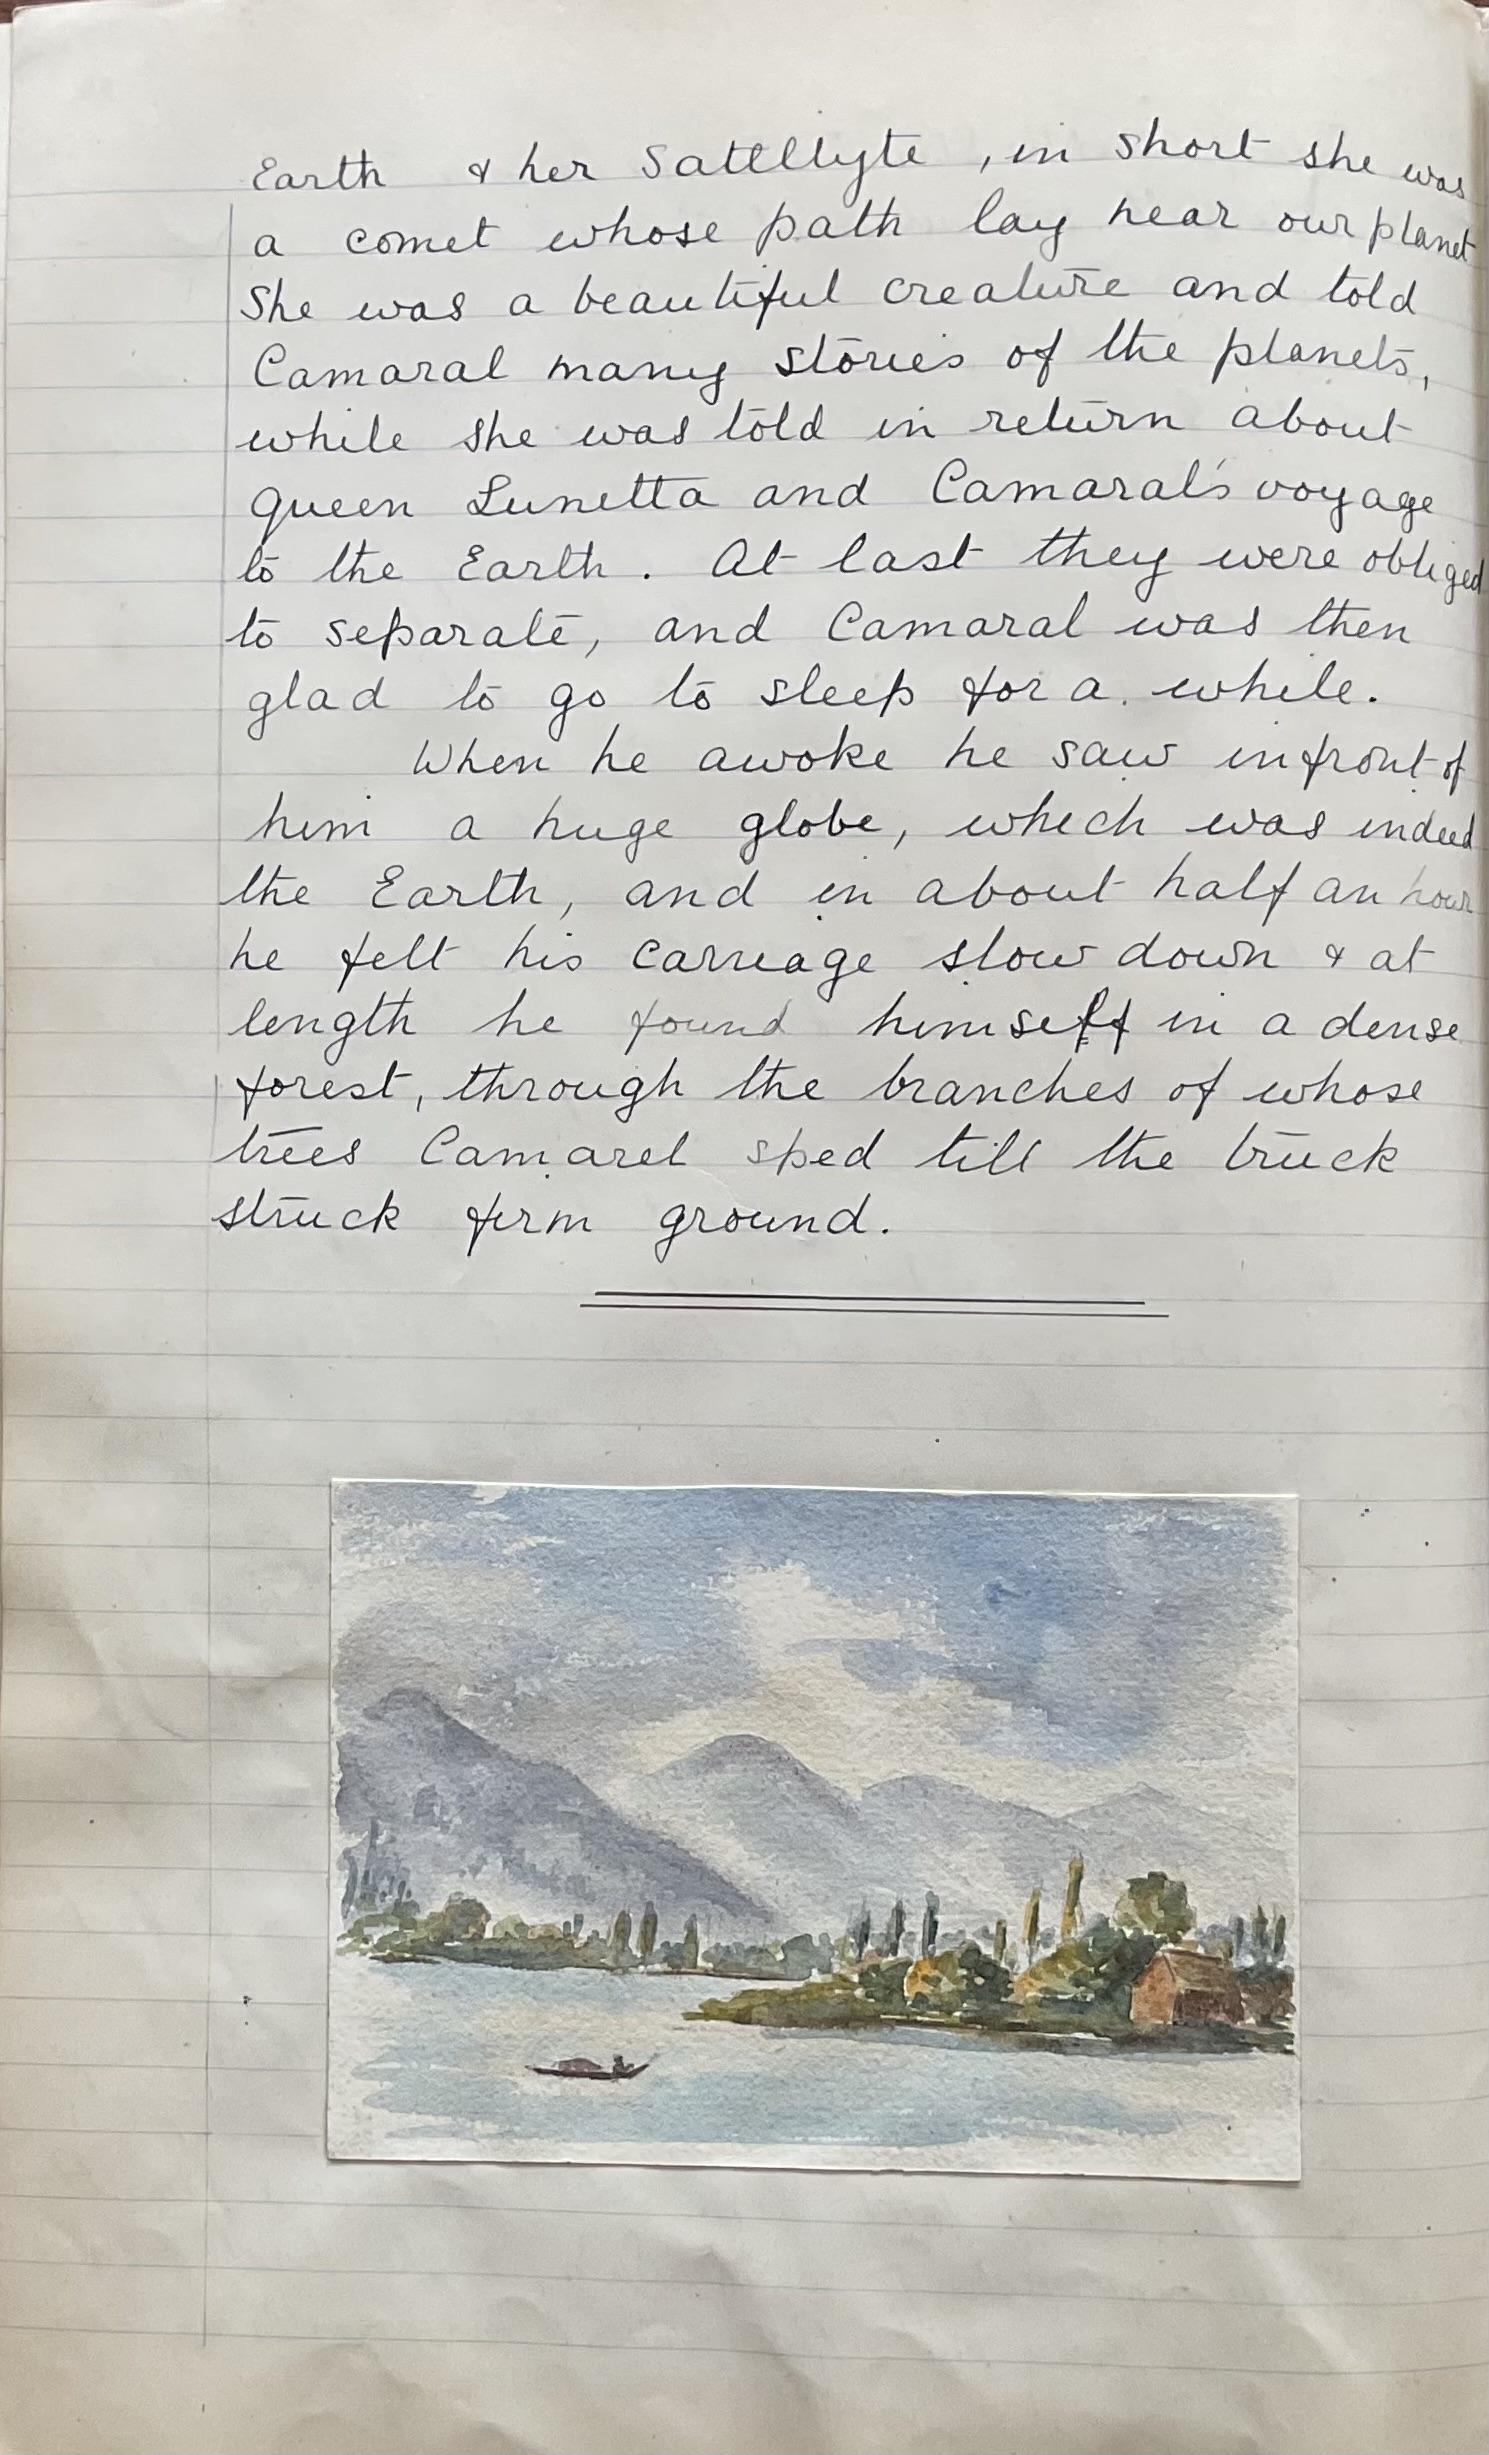 Earth & her Satellyte, in short she was
a comet whose path lay near our planet
She was a beautiful creature and told
Camaral many stories of the planets,
while she was told in return about
Queen Lunetta and Camaral's voyage
to the Earth. At last they were obliged
to separate, and Camaral was then
glad to go to sleep for a while.
When he awoke he saw infront of
him a huge globe, which was indeed
the Earth, and in about half an hour
he felt his carriage slow down & at
length he found himself in a dense
forest, through the branches of whose
trees Camarel sped till the truck
struck firm ground.